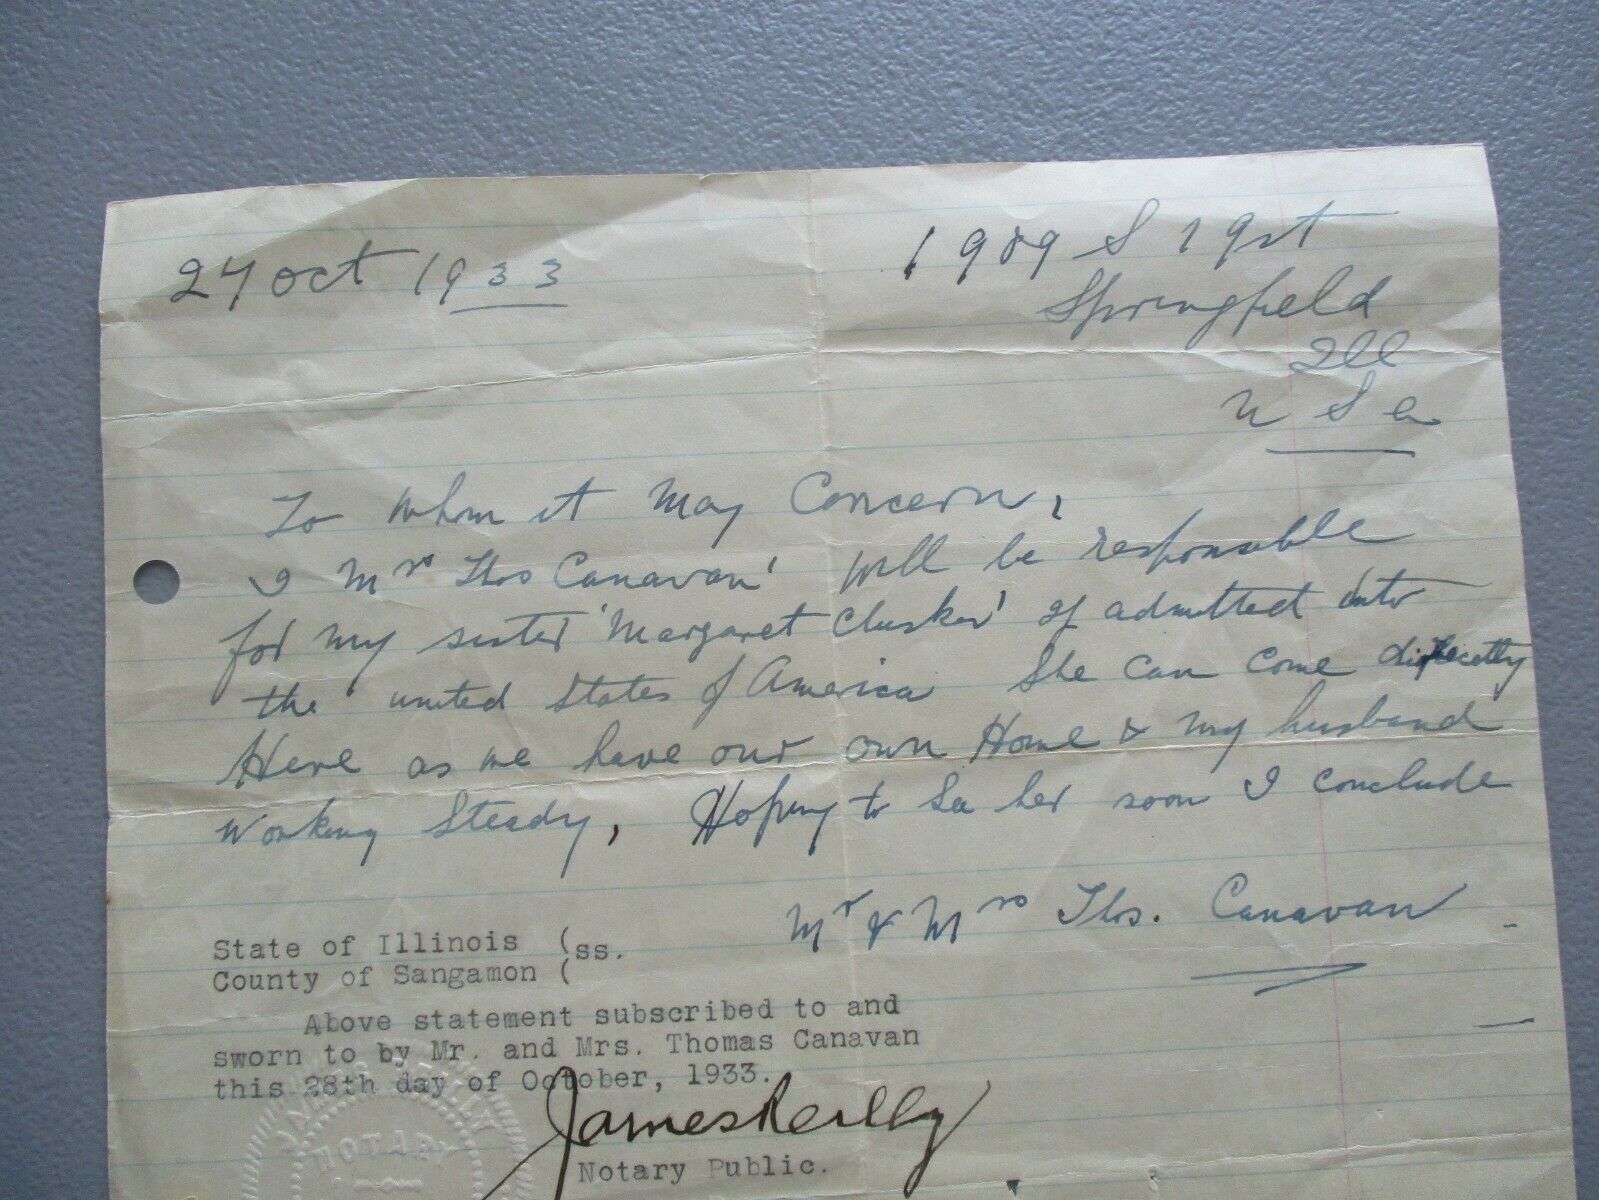 27 Oct 1933
1909 S 19st
Springfield
Ill
U S a
To Whom it May Concern,
I Mrs Thos Canavan' will be responsible
for my sister 'Margaret Clusker' if admitted into
the united States of America She can come directly
Here as we have our own Home & my husband
Working Steady, Hoping to See her soon I conclude
Mr & Mrs Thos. Canavan
State of Illinois (
County of Sangamon ( ss.
Above statement subscribed to and
sworn to by Mr. and Mrs. Thomas Canavan
this 28th day of October, 1933.
James Reilly
Notary Public.
NOTARY